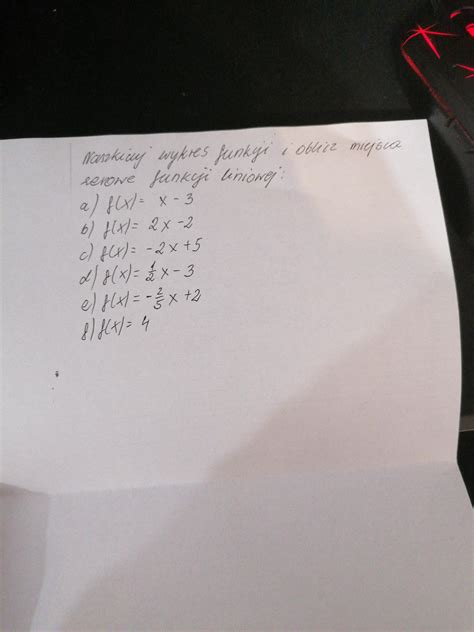 Naszkicuj wykres funkcji i oblicz miejsca
zerowe funkcji liniowej:
a) f(x)= x-3
b) f(x)= 2x-2
c) f(x)= -2x+5
d) f(x)= 1/2 x-3
e) f(x)= -2/5 x+2
f) f(x)= 4